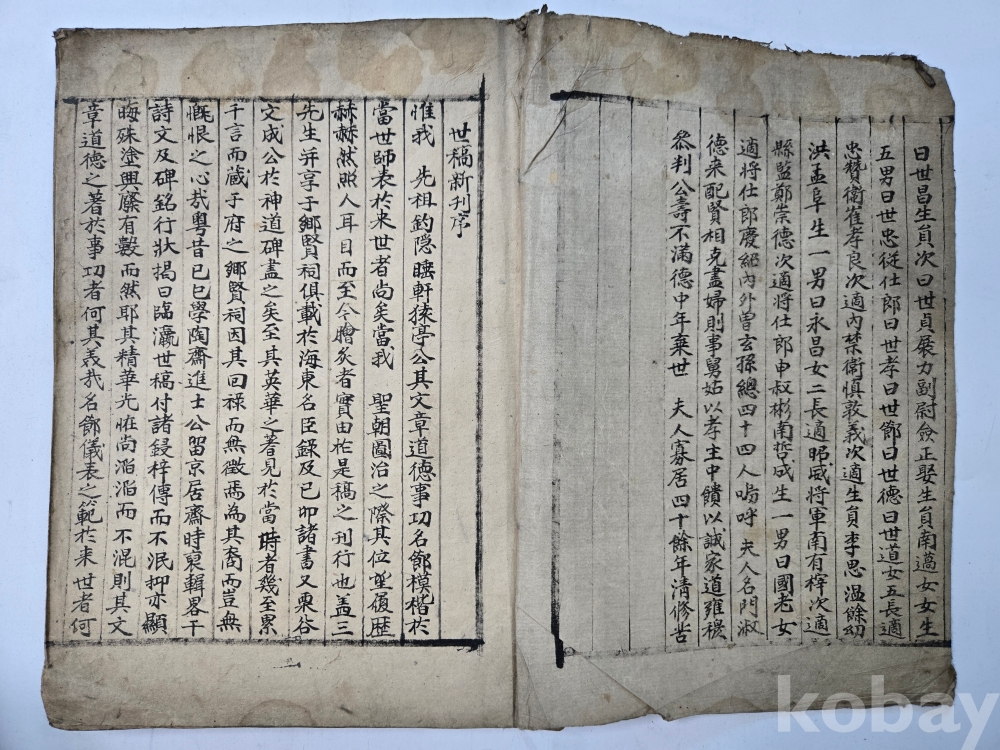 曰世昌生員次曰世貞展力副尉僉正娶生員南邁女女生
五男曰世忠從仕郎曰世孝曰世節曰世德曰世道女五長適
忠贊衛崔孝良次適內禁衛愼敦義次適生員李思溫餘幼
洪孟阜生一男曰永昌女二長適昭威將軍南有樟次適
縣監鄭崇德次適將仕郎申叔彬南哲成生一男曰國老女
適將仕郎慶紹內外曾玄孫總四十四人嗚呼 夫人名門淑
德来配賢相克盡婦則事舅姑以孝主中饋以誠家道雍穆
叅判公壽不滿德中年棄世 夫人寡居四十餘年清修苦
世稿新刊序
惟我 先祖釣隱睡軒猿亭公其文章道德事功名節模楷於
當世師表於来世者尚矣當我 聖朝圖治之際其位望履歴
赫赫然照人耳目而至今膾炙者實由於是稿之刊行也盖三
先生并享于鄉賢祠俱載於海東名臣錄及己卯諸書又栗谷
文成公於神道碑盡之矣至其英華之著見於當時者幾至累
千言而藏于府之鄉賢祠因其回祿而無徵焉為其裔而豈無
慨恨之心㢤粤昔己巳學陶齋進士公留京居齋時裒輯畧干
詩文及碑銘行狀揭曰臨瀛世稿付諸鋟梓傳而不泯抑亦顯
晦殊塗興廢有數而然耶其精華光怪尚滔滔而不混則其文
章道德之著於事功者何其義㢤名節儀表之範於来世者何
kobay